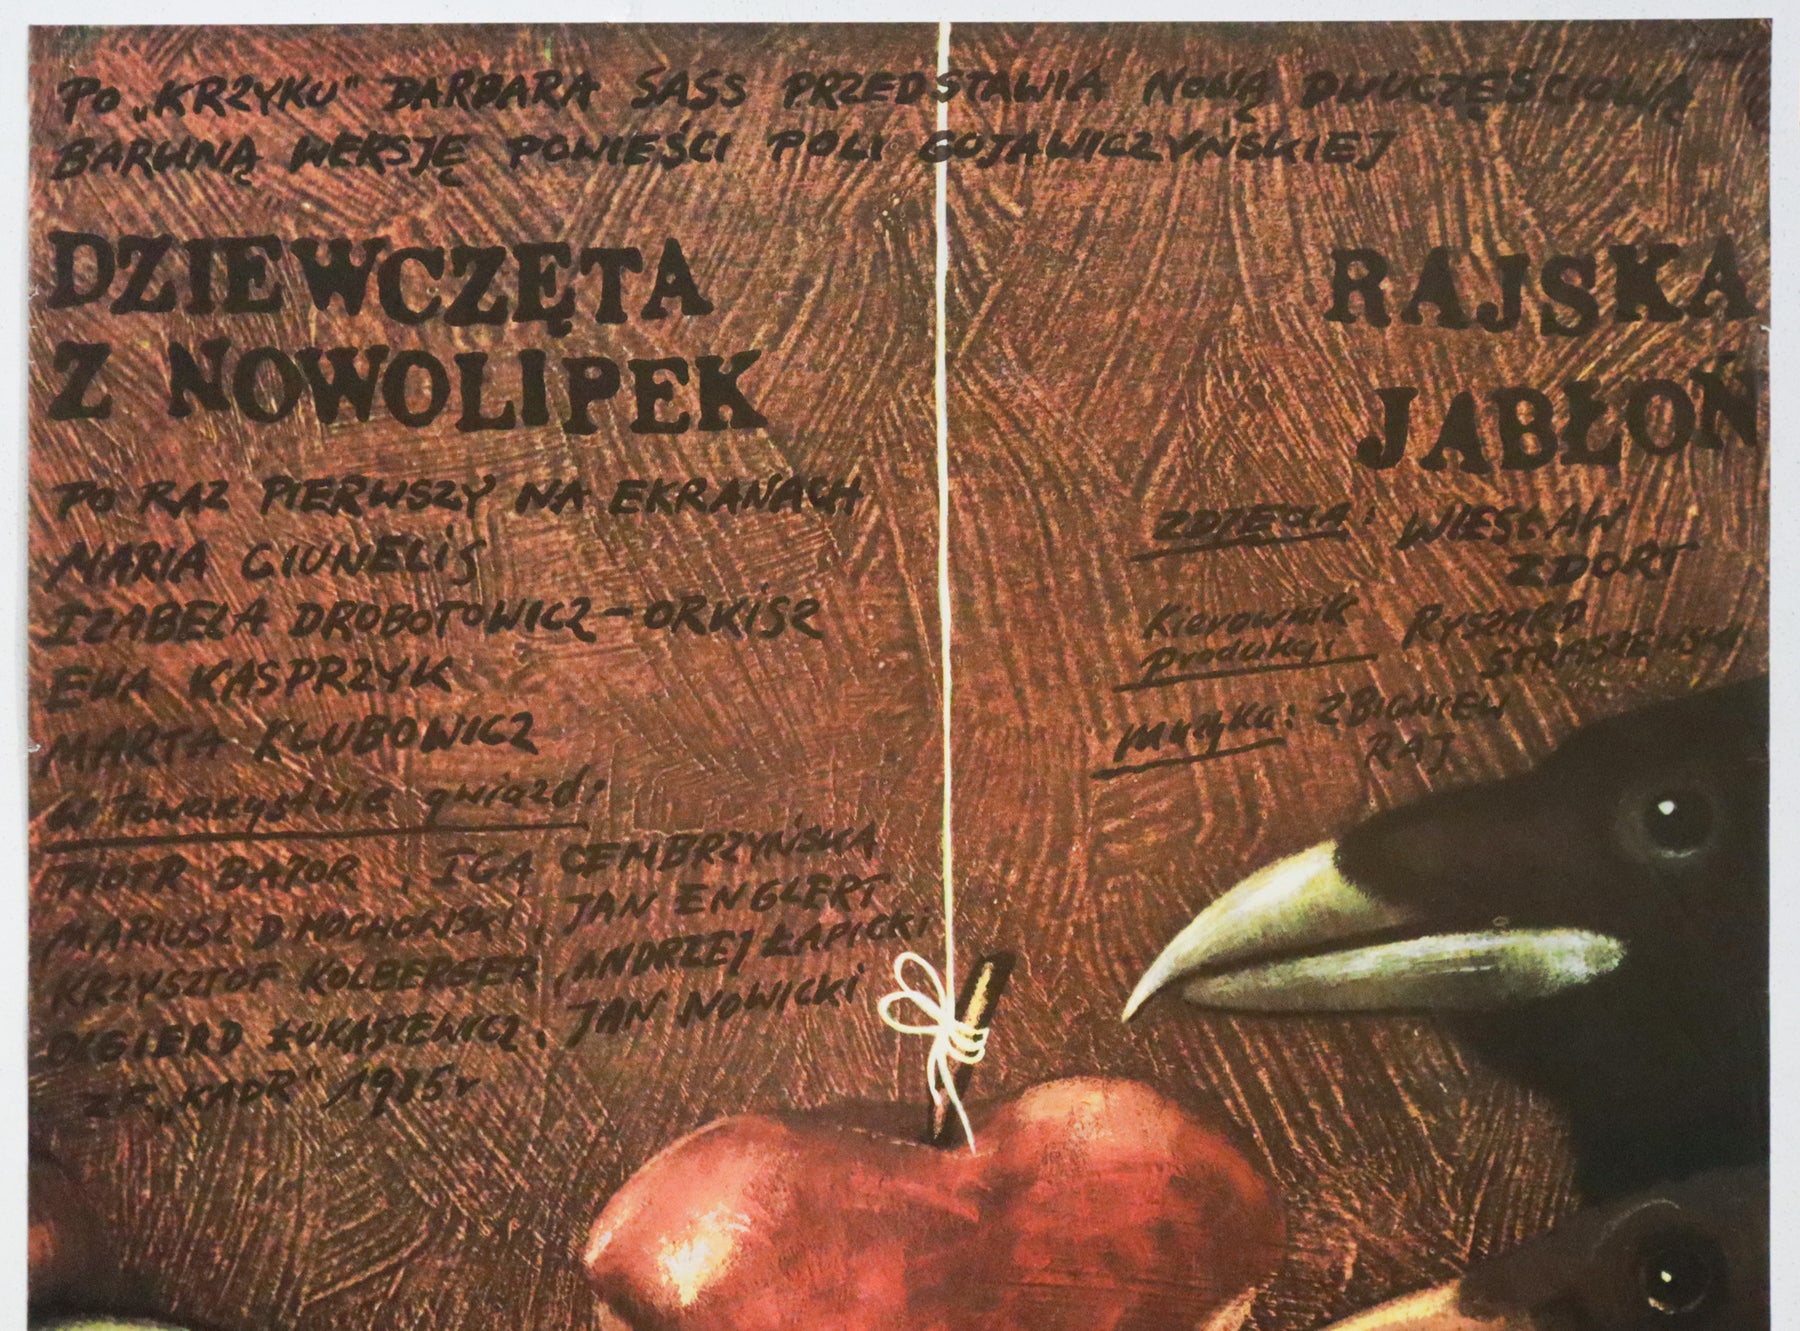 PO „KRZYKU" BARBARA SASS PRZEDSTAWIA NOWĄ DWUCZĘŚCIOWĄ
BARWNĄ WERSJĘ POWIEŚCI POLI GOJAWICZYŃSKIEJ
DZIEWCZĘTA
Z NOWOLIPEK
PO RAZ PIERWSZY NA EKRANACH
MARIA CIUNELIS
IZABELA DROBOTOWICZ-ORKISZ
EWA KASPRZYK
MARTA KLUBOWICZ
w towarzystwie gwiazd:
PIOTR BAJOR, IGA CEMBRZYŃSKA
MARIUSZ DMOCHOWSKI, JAN ENGLERT
KRZYSZTOF KOLBERGER, ANDRZEJ ŁAPICKI
OLGIERD ŁUKASZEWICZ, JAN NOWICKI
Z.F. „KADR" 1985 r
RAJSKA
JABŁOŃ
ZDJĘCIA: WIESŁAW
ZDORT
Kierownik
Produkcji: RYSZARD
STRASZEWSKI
Muzyka: ZBIGNIEW
RAJ